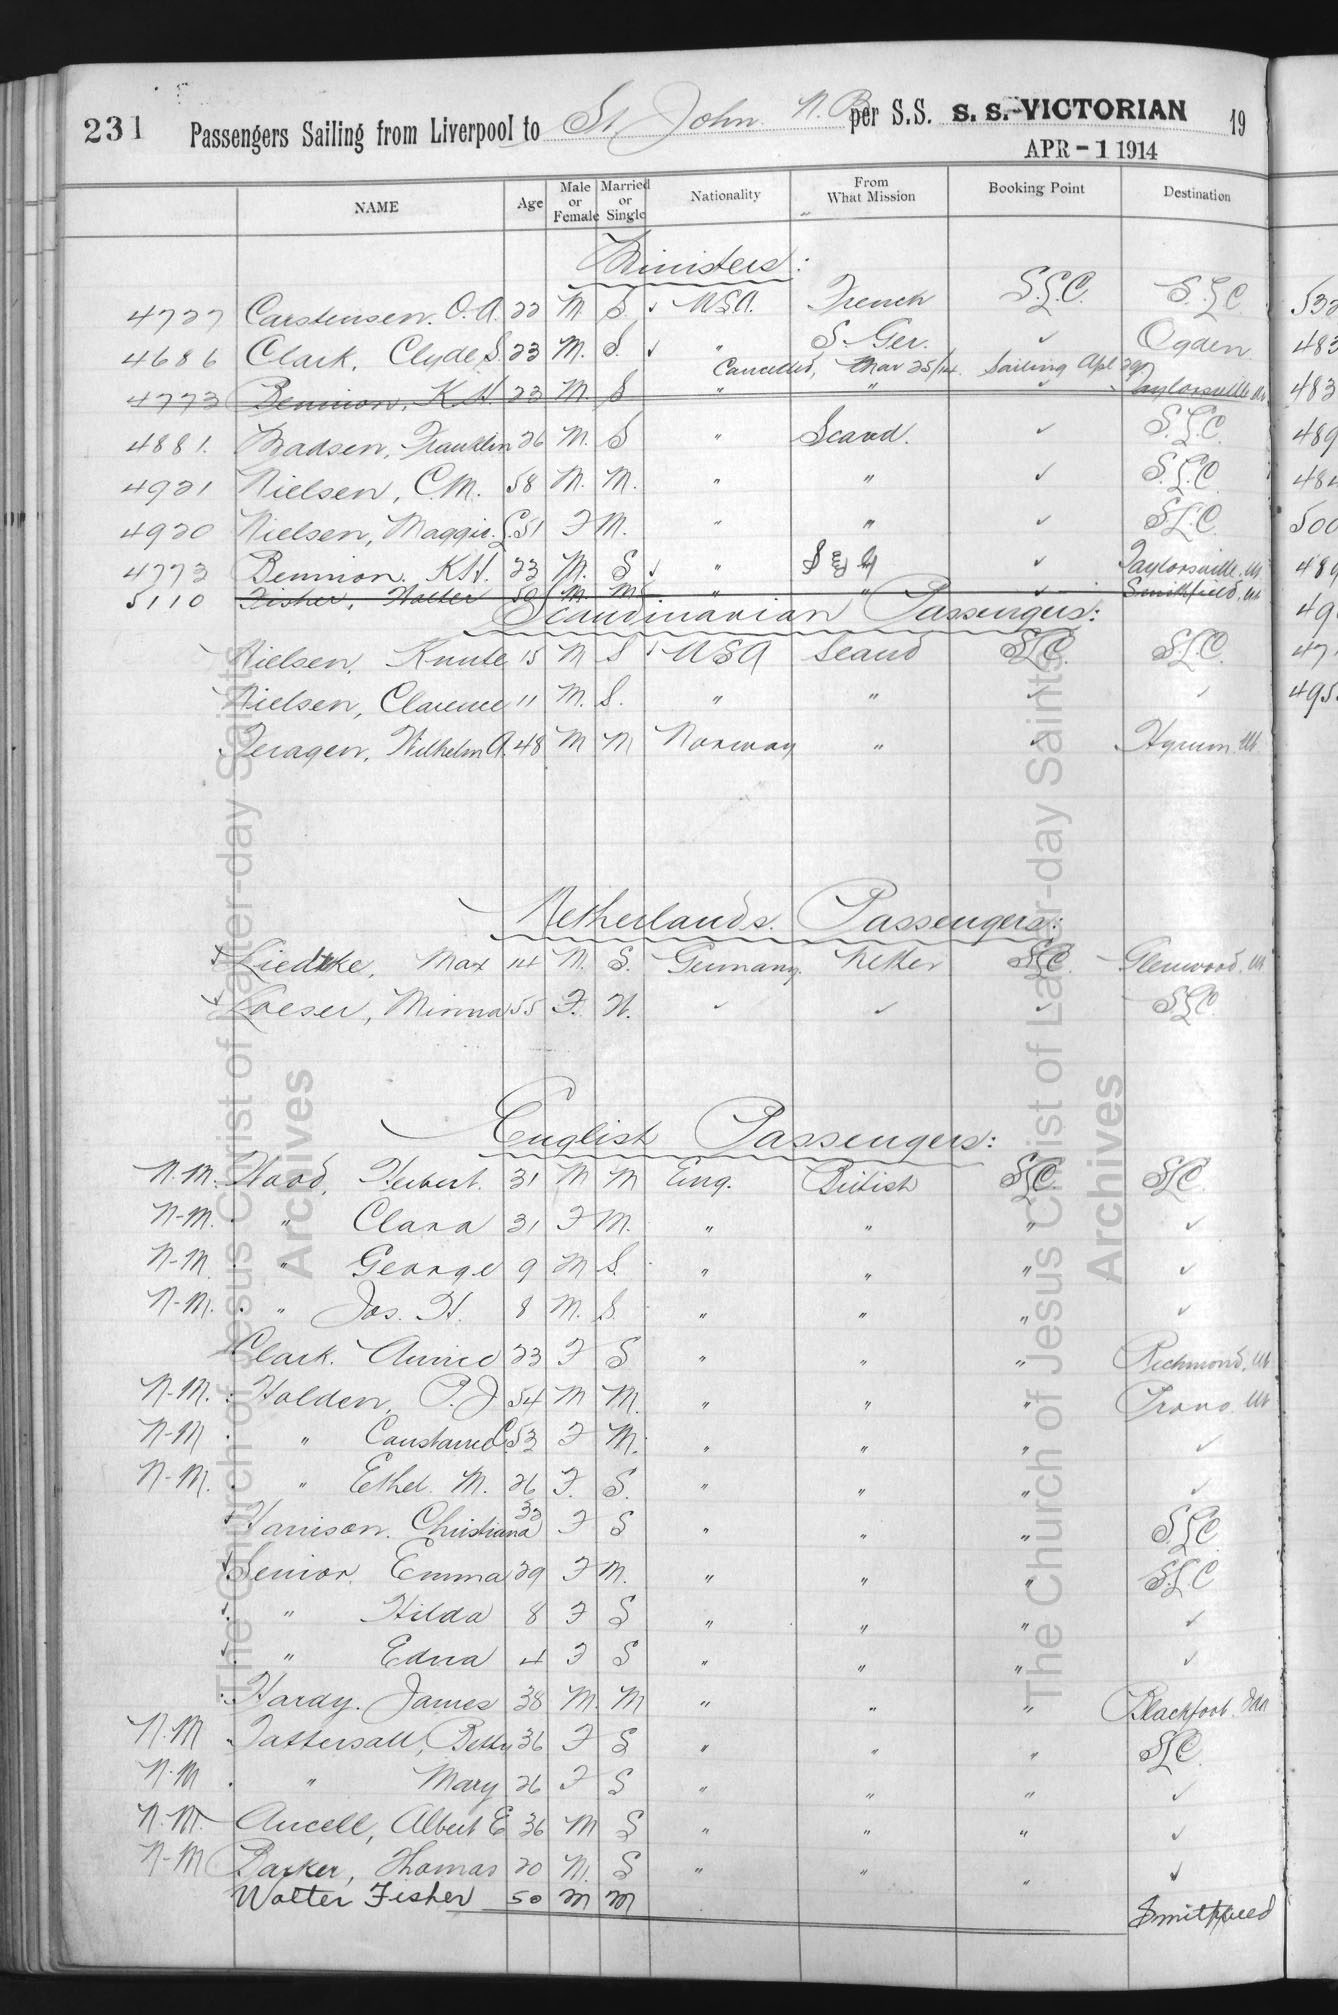 231 Passengers Sailing from Liverpool to St John N.B. per S.S. S. S. VICTORIAN 19
APR - 1 1914
NAME Age Male or Female Married or Single Nationality From What Mission Booking Point Destination
Ministers:
4727 Carstensen. O. A. 22 M. S. ✓ USA. French S.L.C. S.L.C. 532
4686 Clark, Clyde S. 23 M. S. ✓ " S. Ger. ✓ Ogden 483
Cancelled, Mar 25/14. Sailing Apl 29
4773 Bennion, K.H. 23 M. S " " ✓ Taylorsville Ut 483
4881. Madsen, Franklin 26 M. S " Scand. ✓ S.L.C. 489
4921 Nielsen, C.M. 58 M. M. " " ✓ S.L.C. 484
4920 Nielsen, Maggie. L. 51 F M. " " ✓ S.L.C. 500
4773 Bennion. K.H. 23 M. S ✓ " S & G ✓ Taylorsville, Ut 489
5110 Fisher, Walter 50 M. M. " " ✓ Smithfield, Ut 49
Scandinavian Passengers:
Nielsen, Knute 15 M S ✓ USA Scand SLC. S.L.C. 47
Nielsen, Clarence 11 M. S. " " ✓ ✓ 495
Teragen, Wilhelm A. 48 M M Norway " ✓ Hyrum. Ut
Netherlands. Passengers:
Liedtke, Max 14 M. S. Germany. Nether SLC. Glenwood, Ut
Loeser, Minna 55 F. W. ✓ ✓ ✓ SLC.
English Passengers:
N.M. Wood, Herbert. 31 M M Eng. British SLC. SLC.
N-M. " Clara 31 F M. " " " ✓
N-M " George 9 M S. " " " ✓
N-M. " Jos. H. 8 M. S. " " " ✓
Clark. Annie 23 F S " " " Richmond, Ut
N-M. Holden, P. J 54 M M. " " " Provo. Ut
N-M " Constance C. 53 F M. " " " ✓
N-M. " Ethel. M. 26 F. S. " " " ✓
Harrison. Christiana 32 F S " " " S.L.C.
Senior. Emma 29 F M. " " " S.L.C
" Hilda 8 F S " " " ✓
" Edna 4 F S " " " ✓
Hardy. James 38 M. M " " " Blackfoot. Ida
N.M Tattersall, Betty 36 F S " " " SLC.
N.M " Mary 26 F S " " " ✓
N.M. Ancell, Albert E 36 M S " " " ✓
N-M Parker, Thomas 20 M. S " " " ✓
Walter Fisher 50 M M Smithfield
The Church of Jesus Christ of Latter-day Saints
Archives
The Church of Jesus Christ of Latter-day Saints
Archives